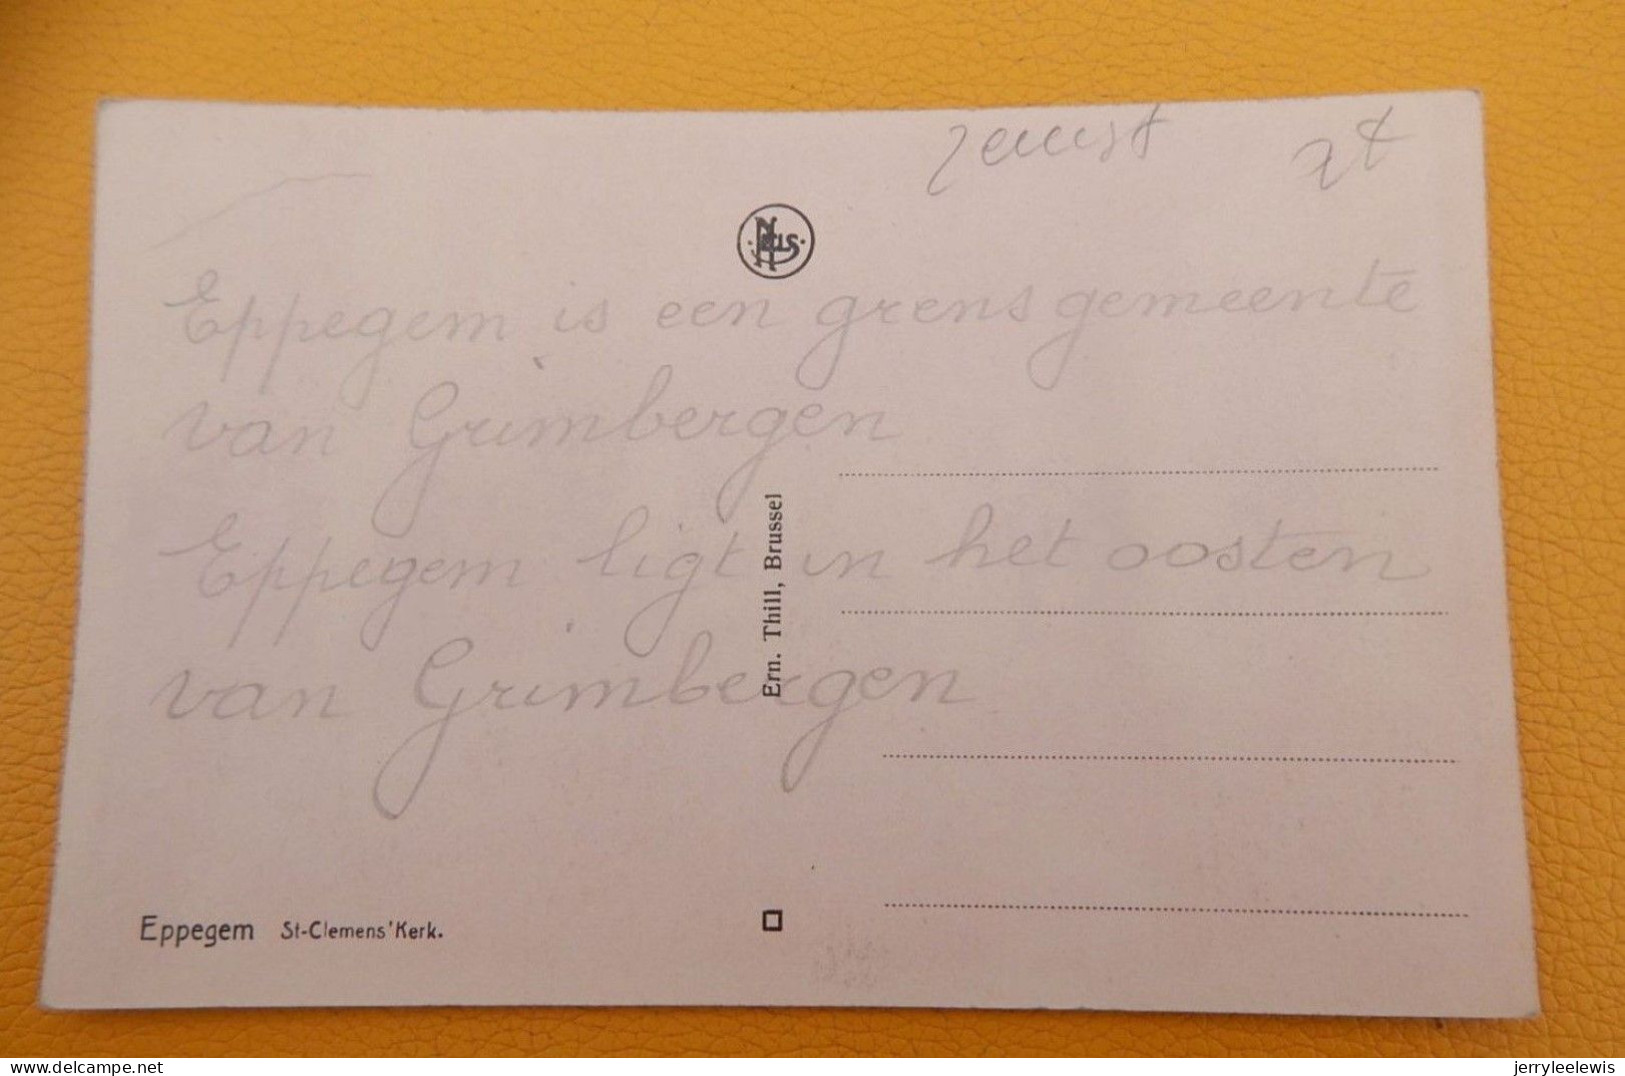 zemst
NELS
Eppegem is een grensgemeente
van Grimbergen
Eppegem ligt in het oosten
van Grimbergen
Ern. Thill, Brussel
Eppegem St-Clemens' Kerk.
delcampe.net
jerryleelewis